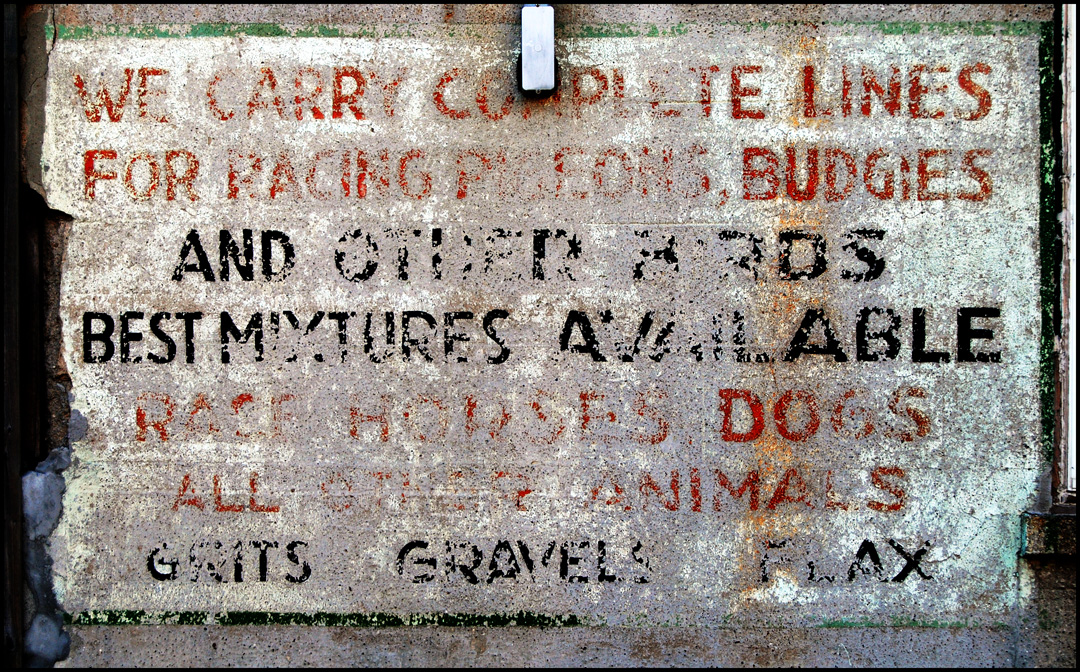 WE CARRY COMPLETE LINES
FOR RACING PIGEONS, BUDGIES
AND OTHER BIRDS
BEST MIXTURES AVAILABLE
RACE HORSES DOGS
ALL OTHER ANIMALS
GRITS GRAVELS FLAX